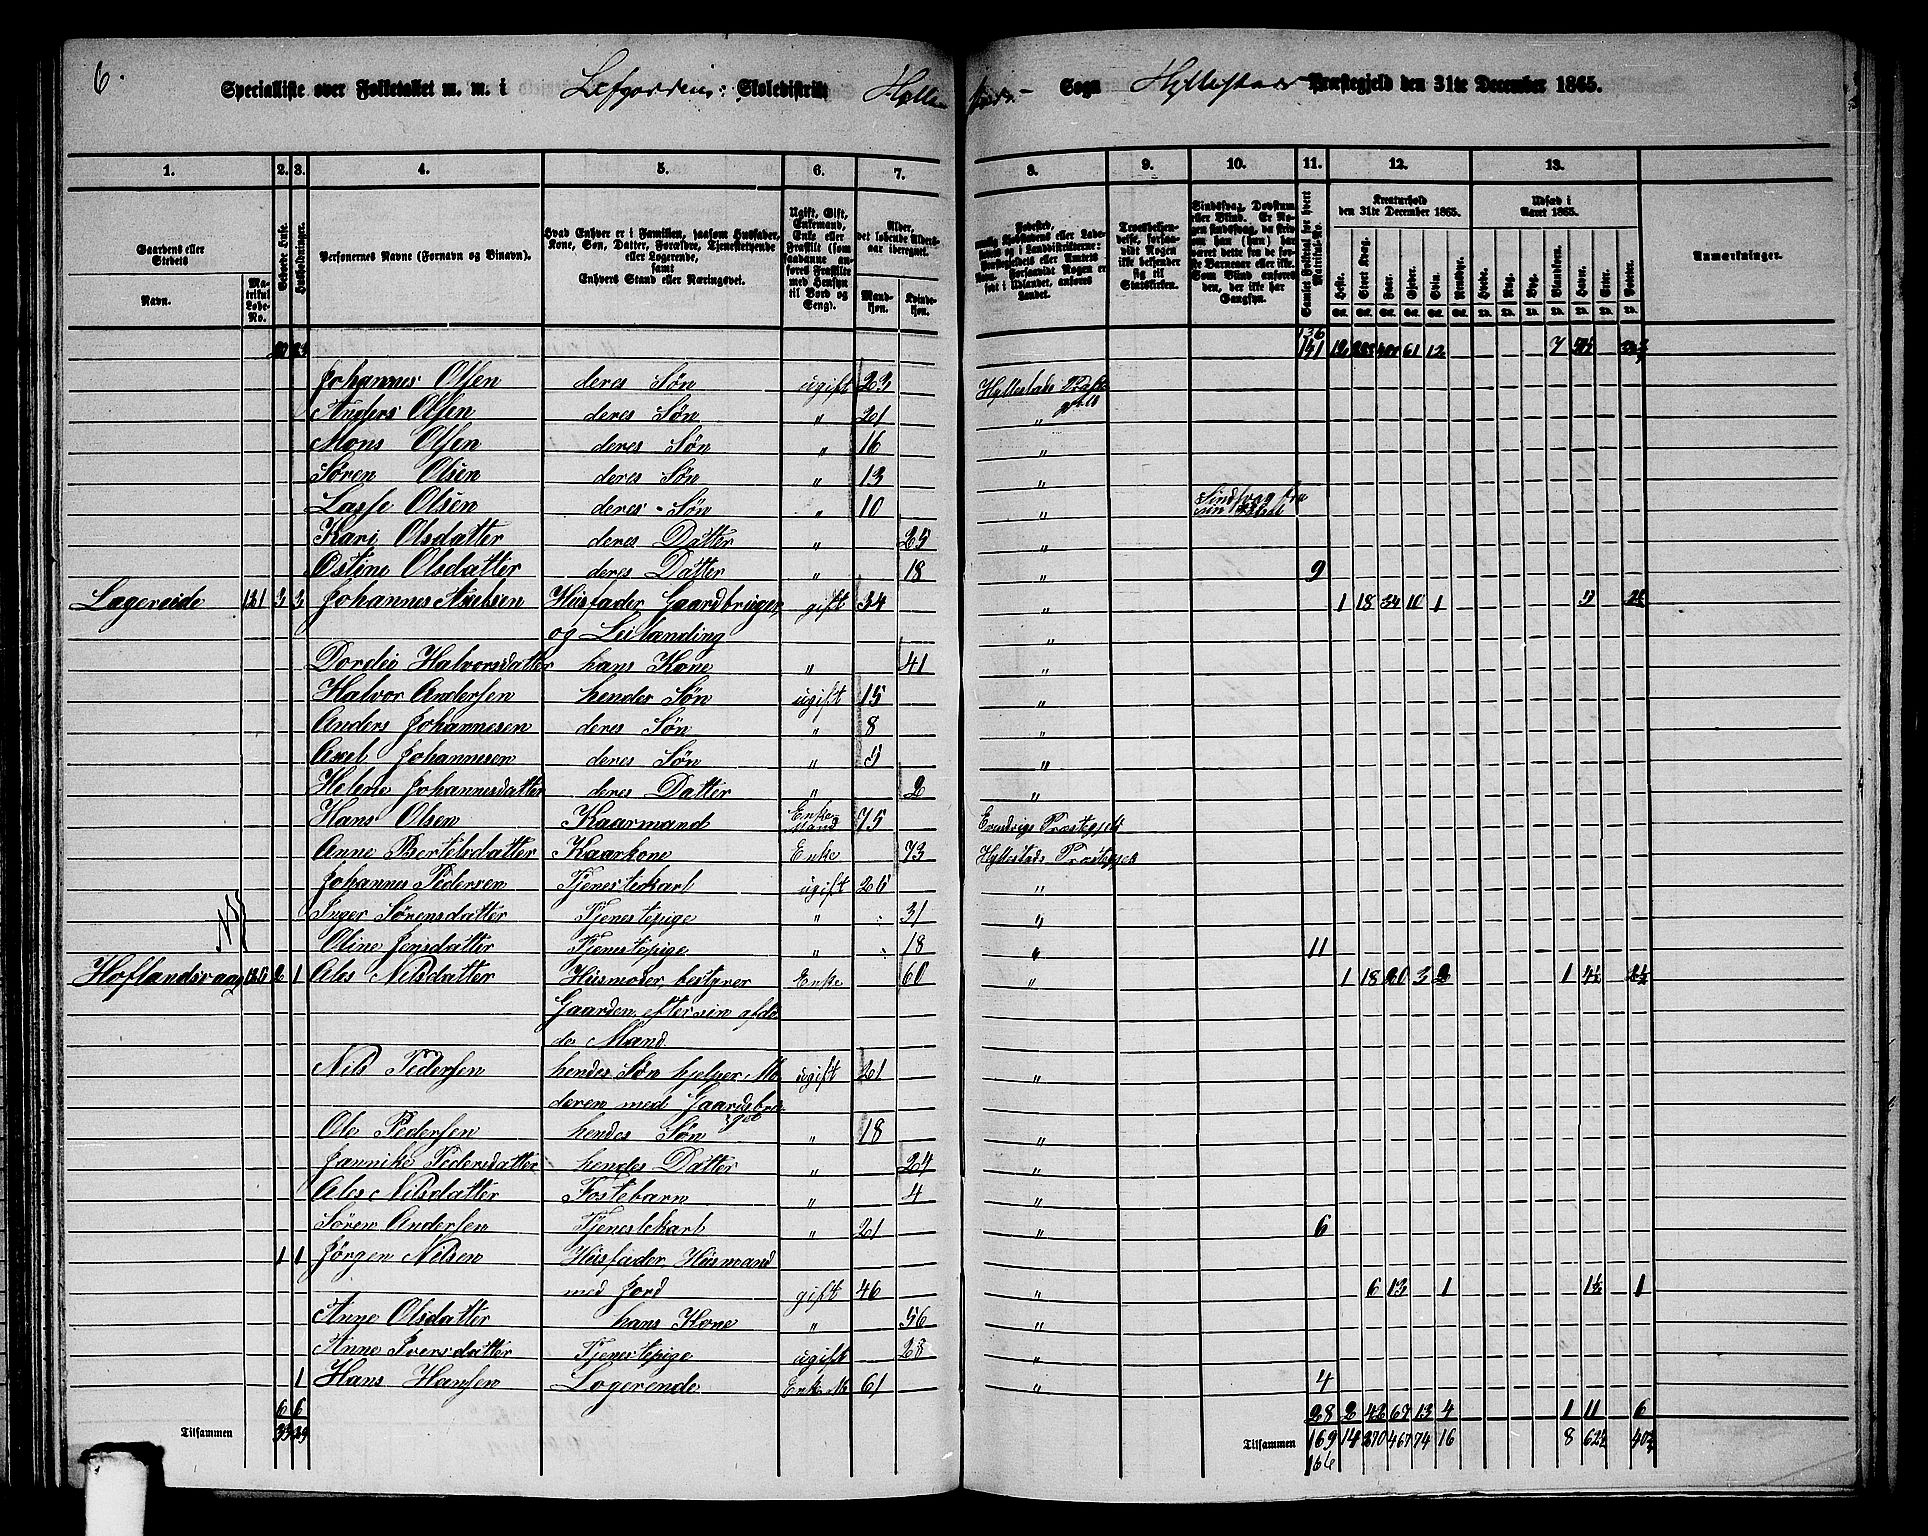 6.
Specialliste over Folketallet m. m. i Lefjordens Skoledistrikt Sogn Hyllestads Præstegjeld den 31te December 1865.
1. 2. 3. 4. 5. 6. 7. 8. 9. 10. 11. 12. 13.
Gaardens eller Stedets Navn. Matrikul Løbe-No.
Beboede Huse. Husholdninger.
Personernes Navne (Fornavn og Binavn).
Hvad Enhver er i Familien, saasom Husfader, Kone, Søn, Datter, Forældre, Tjenestetyende eller Logerende, samt Enhvers Stand eller Næringsvei.
Ugift, Gift, Enkemand, Enke eller Fraskilt (som saadanne anføres Fraskilte med Hensyn til Bord og Seng).
Alder, det løbende Aldersaar iberegnet. Mandkjøn. Kvindekjøn.
Kreaturhold den 31te December 1865.
Heste. Stort Kvæg. Faar. Gjeder. Svin. Rensdyr.
Udsæd i Aaret 1865.
Hvede. Rug. Byg. Blandkorn. Havre. Erter. Poteter.
Anmærkninger.
136
151 61 12 7
Johannes Olsen deres Søn ugift 23 Hyllestads
Anders Olsen deres Søn " 21 "
Mons Olsen deres Søn " 16 "
Søren Olsen deres Søn " 13 "
Lasse Olsen deres Søn " 10 " Sindsvag fra
Kari Olsdatter deres Datter " 25 "
Ostine Olsdatter deres Datter " 18 " 9
Lægereide 131 3 3 Johannes Axelsen Husfader Gaardbruger gift 34 " 1 18 34 10 1
og Leilænding "
Dordei Halvorsdatter hans Kone " 41 "
Halvor Andersen hendes Søn ugift 15 "
Anders Johannesen deres Søn " 8 "
Axel Johannesen deres Søn " 5 "
Helene Johannesdatter deres Datter " 2 "
Hans Olsen Kaarmand Enke Mand 75 Præstegjeld
Anne Bertelsdatter Kaarkone Enke 73 Hyllestads Præstegjeld
Johannes Pedersen Tjenestekarl ugift "
Inger Sørensdatter Tjenestepige " 31 "
Oline Jensdatter Tjenestepige " 18 " 11
Hoflandsvaag 2 1 Ales Nilsdatter Husmoder, bestyrer Enke 60 " 1 18 20 3 2 1 4½ 2½
Gaarden efter sin afdø
de Mand.
Nils Pedersen hendes Søn hjelper Mo ugift 21 "
deren med Gaardsbru
get
Ole Pedersen hendes Søn " 18 "
Jannike Pedersdatter hendes Datter " 24 "
Ales Nilsdatter Fostebarn " 4 "
Søren Andersen Tjenestekarl " 21 " 6
1 1 Jørgen Nilsen Husfader, Husmand
med Jord gift 46 " 6 13 1 1½ 1
Anne Olsdatter hans Kone " 56 "
Anne Iversdatter Tjenestepige ugift 28 "
1 Hans Hansen Logerende Enke M 61 " 4
6 6 28 2 42 67 13 4 1 11 6
Tilsammen Tilsammen 169 14 74 16 8 62½
166